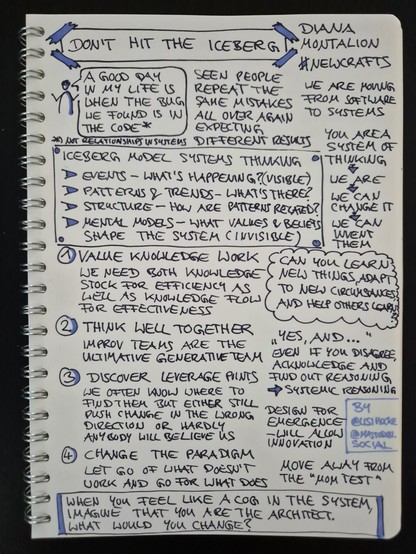 DON'T HIT THE ICEBERG
DIANA
MONTALION
#NEWCRAFTS
A GOOD DAY
IN MY LIFE IS
WHEN THE BUG
WE FOUND IS IN
THE CODE*
*) NOT RELATIONSHIPS IN SYSTEMS
SEEN PEOPLE
REPEAT THE
SAME MISTAKES
ALL OVER AGAIN
EXPECTING
DIFFERENT RESULTS
WE ARE MOVING
FROM SOFTWARE
TO SYSTEMS
YOU ARE A
SYSTEM OF
THINKING
WE ARE
WE CAN
CHANGE IT
WE CAN
INVENT
THEM
ICEBERG MODEL SYSTEMS THINKING
EVENTS - WHAT'S HAPPENING? (VISIBLE)
PATTERNS & TRENDS - WHAT'S THERE?
STRUCTURE - HOW ARE PATTERNS RELATED?
MENTAL MODELS - WHAT VALUES & BELIEFS
SHAPE THE SYSTEM (INVISIBLE)
1 VALUE KNOWLEDGE WORK
WE NEED BOTH KNOWLEDGE
STOCK FOR EFFICIENCY AS
WELL AS KNOWLEDGE FLOW
FOR EFFECTIVENESS
CAN YOU LEARN
NEW THINGS, ADAPT
TO NEW CIRCUMSTANCES
AND HELP OTHERS LEARN
2 THINK WELL TOGETHER
IMPROV TEAMS ARE THE
ULTIMATIVE GENERATIVE TEAM
„YES, AND..."
EVEN IF YOU DISAGREE,
ACKNOWLEDGE AND
FIND OUT REASONING
➔ SYSTEMIC REASONING
3 DISCOVER LEVERAGE POINTS
WE OFTEN KNOW WHERE TO
FIND THEM BUT EITHER STILL
PUSH CHANGE IN THE WRONG
DIRECTION OR HARDLY
ANYBODY WILL BELIEVE US
DESIGN FOR
EMERGENCE
- WILL ALLOW
INNOVATION
BY
@LISIHOCKE
@MASTODON.
SOCIAL
4 CHANGE THE PARADIGM
LET GO OF WHAT DOESN'T
WORK AND GO FOR WHAT DOES
MOVE AWAY FROM
THE "MOM TEST"
WHEN YOU FEEL LIKE A COG IN THE SYSTEM,
IMAGINE THAT YOU ARE THE ARCHITECT.
WHAT WOULD YOU CHANGE?